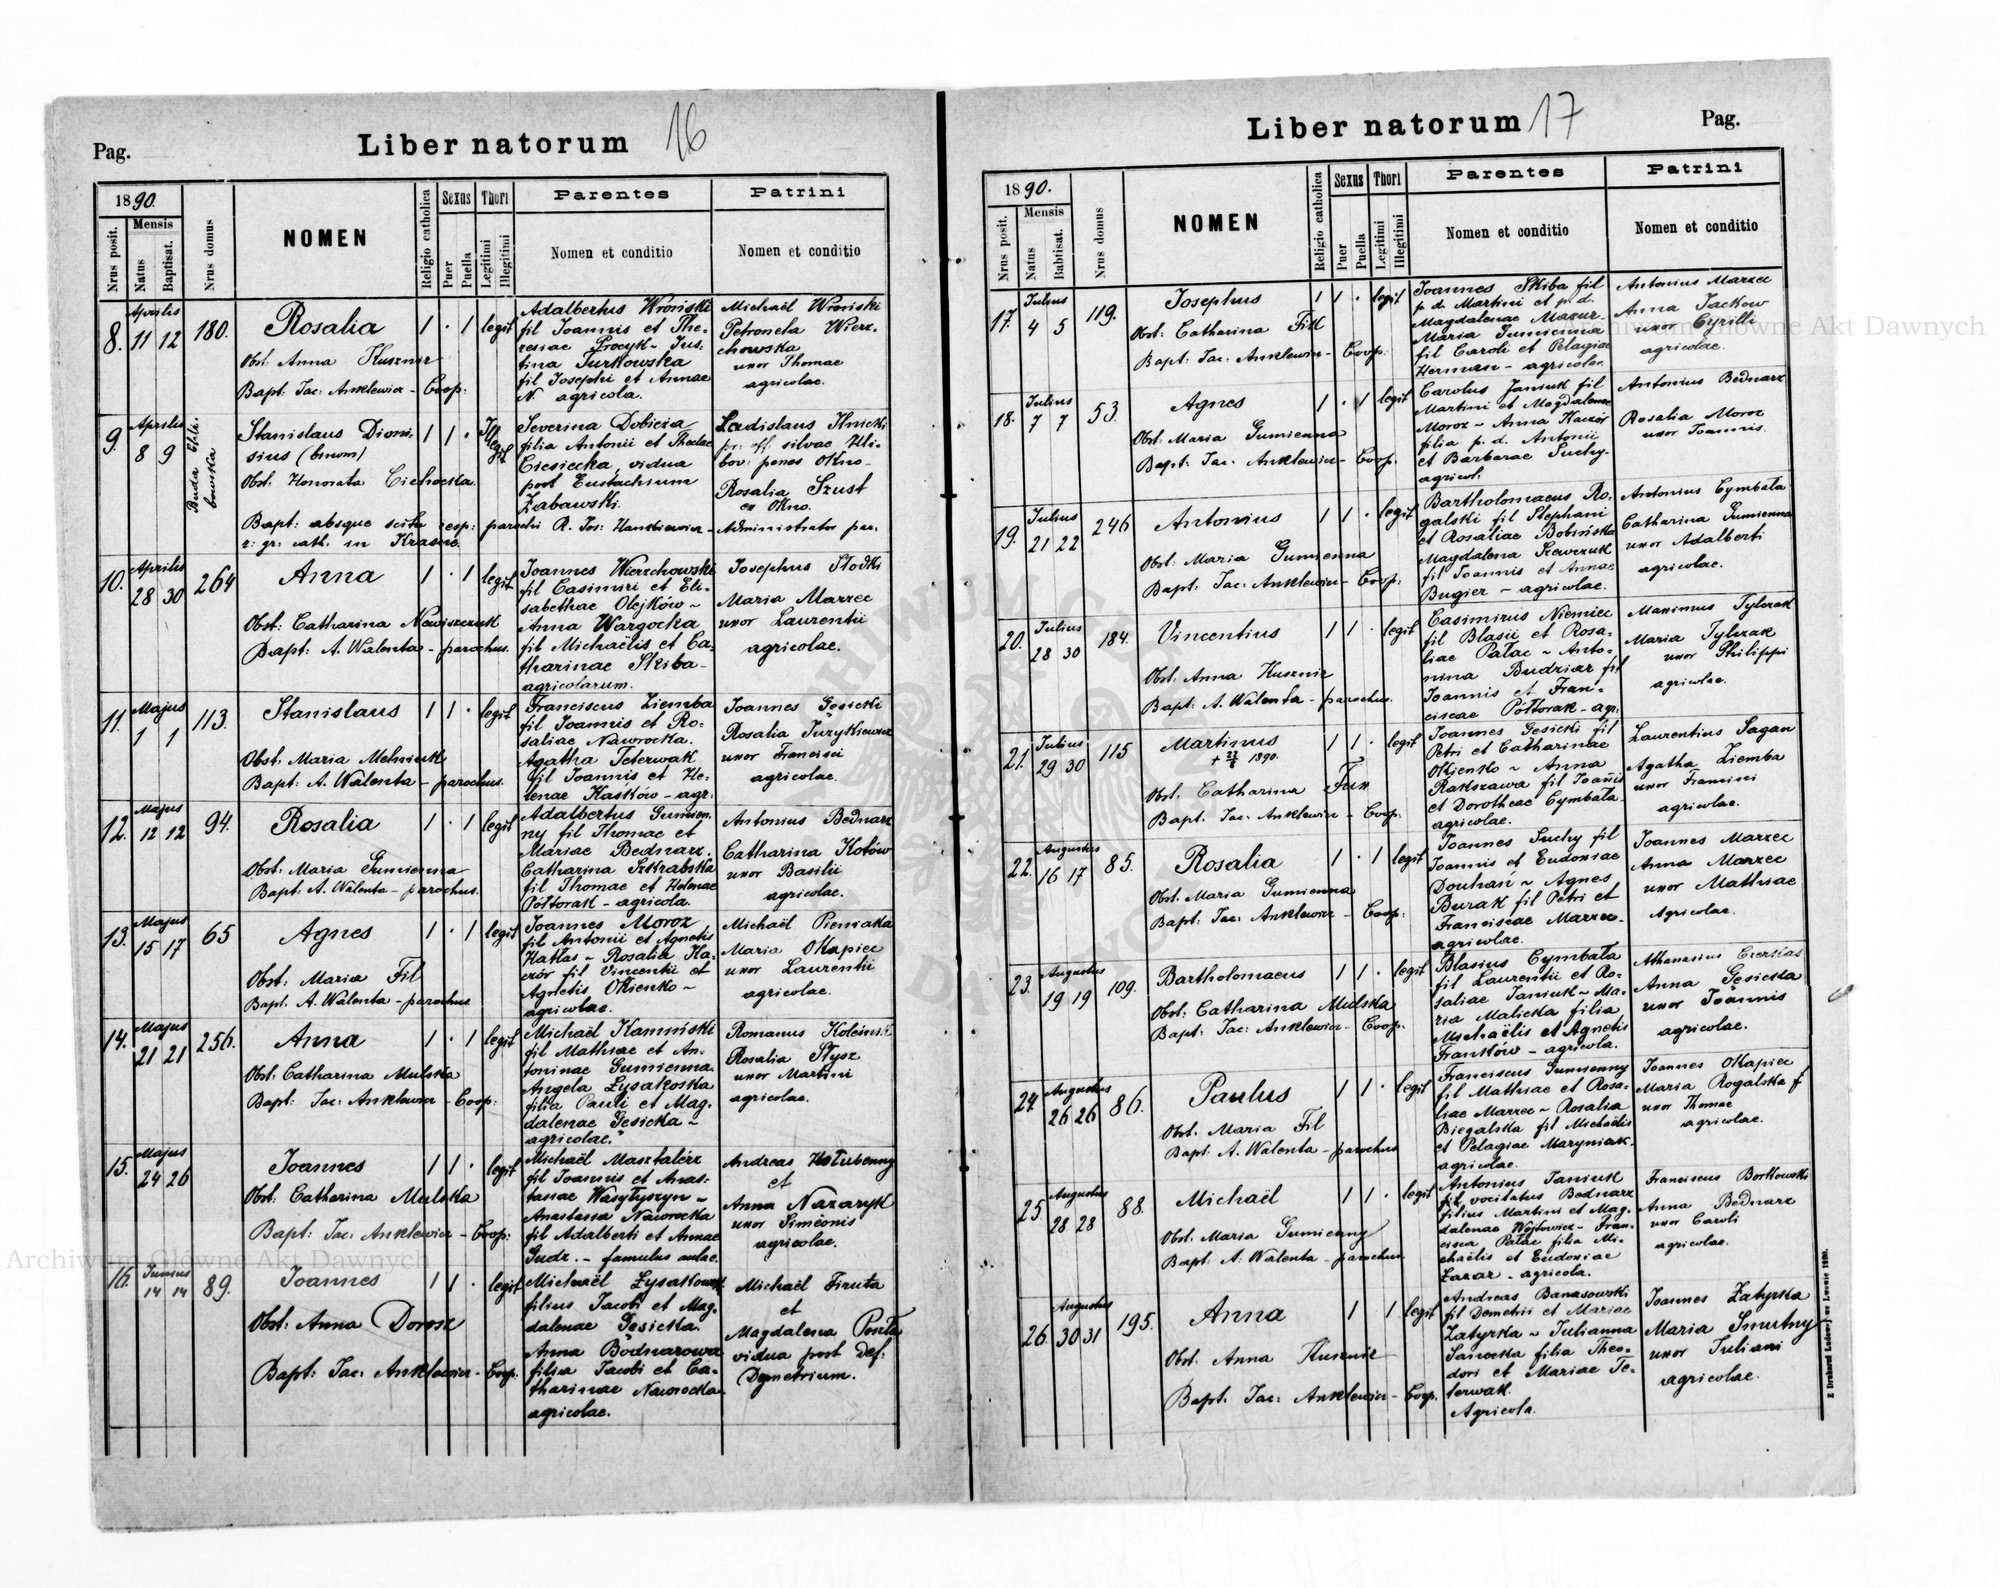 Pag.
Liber natorum 16
1890.
Nrus posit.
Mensis
Natus
Baptisat.
Nrus domus
NOMEN
Religio catholica
Sexus
Puer
Puella
Thori
Legitimi
Illegitimi
Parentes
Nomen et conditio
Patrini
Nomen et conditio
8. Aprilis 11 12 180. Rosalia 1 · 1 legit
Obst. Anna Kusznir
Bapt: Jac: Anklewicz - Coop:
Adalbertus Wroński
fil Joannis et The-
resiae Procyk - Jus-
tina Turkowska
fil Josephi et Annae
N agricola.
Michaël Wroński
Petronela Wierz-
chowska
uxor Thomae
agricolae.
9. Aprilis 8 9 Stanislaus Dioni-
sius (binom) 1 1 ·
Obst. Honorata Cichocka.
Bapt: absque scitu resp: parochi R. Jos: Hankiewicz - Administrator par.
r: gr: cath. in Krasne.
Severina Dobicia
filia Antonii et Theclae
Ciesiecka, vidua
post Eustachium
Żabawski.
Ladislaus Ilnicki
silvae Hli-
bov: penes Okno -
Rosalia Szust
ex Okno.
10. Aprilis 28 30 264 Anna 1 · 1 legit
Obst: Catharina Nowiszczuk
Bapt: A. Walenta - parochus.
Joannes Wierzchowski
fil Casimiri et Eli-
sabethae Olejków ~
Anna Wargocka
fil Michaëlis et Ca-
tharinae Skiba -
agricolarum.
Josephus Słodki
Maria Marzec
uxor Laurentii
agricolae.
11. Majus 1 1 113. Stanislaus 1 1 · legit
Obst. Maria Melniczuk
Bapt: A. Walenta - parochus.
Franciscus Ziemba
fil Joannis et Ro-
saliae Naworocka.
Agatha Teterwak
fil Joannis et He-
lenae Kaśków - agr:
Joannes Gesicki
Rosalia Jurykiewicz
uxor Francisci
agricolae.
12. Majus 12 12 94. Rosalia 1 · 1 legit
Obst: Maria Gumienna
Bapt. A. Walenta - parochus.
Adalbertus Gumien-
ny fil Thomae et
Mariae Bednarz.
Catharina Szkrabska
fil Thomae et Helenae
Półtorak - agricola.
Antonius Bednarz
Catharina Kotów
uxor Basilii
agricolae.
13. Majus 15 17 65 Agnes 1 · 1 legit
Obst: Maria Fil
Bapt. A. Walenta - parochus
Joannes Moroz
fil Antonii et Agnetis
Hatlas - Rosalia Ka-
czór fil Vincentii et
Agnetis Okienko ~
agricolae.
Michaël Pieniaka
Maria Okapiec
uxor Laurentii
agricolae.
14. Majus 21 21 256. Anna 1 · 1 legit
Obst. Catharina Mulska
Bapt: Jac: Anklewicz - Coop:
Michaël Kamiński
fil Mathiae et An-
toninae Gumienna.
Angela Łysakoska
filia Pauli et Mag-
dalenae Gesicka ~
agricolae.
Romanus Koleśnik
Rosalia Stysz
uxor Martini
agricolae.
15. Majus 24 26 Joannes 1 1 · legit
Obst: Catharina Mulska
Bapt: Jac. Anklewicz - Coop:
Michaël Masztalérz
fil Joannis et Anas-
tasiae Wasyłyszyn -
Anastasia Naworocka
fil Adalberti et Annae
Gudz. - famulus aulae.
Andreas Hołubenny
et
Anna Nazaryk
uxor Siméonis
agricolae.
16. Junius 14 14 89. Joannes 1 1 · legit
Obst: Anna Dorosz
Bapt: Jac: Anklewicz - Coop.
Michaël Łysakowski
filius Jacobi et Mag-
dalenae Gesicka.
Anna Bodnarowa
filia Jacobi et Ca-
tharinae Naworocka
agricolae.
Michaël Firuta
et
Magdalena Posta
vidua post def:
Demetrium.
Liber natorum 17
Pag.
1890.
Nrus posit.
Mensis
Natus
Babtisat.
Nrus domus
NOMEN
Religio catholica
Sexus
Puer
Puella
Thori
Legitimi
Illegitimi
Parentes
Nomen et conditio
Patrini
Nomen et conditio
17. Julius 4 5 119. Josephus 1 1 · legit
Obst: Catharina Fil
Bapt: Jac: Anklewicz - Coop:
Joannes Skiba fil
p. d. Martini et p. d.
Magdalenae Mazur -
Maria Gumienna
fil Caroli et Pelagiae
Herman - agricolae.
Antonius Marzec
Anna Jackow
uxor Cyrilli
agricolae.
18. Julius 7 7 53 Agnes 1 · 1 legit
Obst: Maria Gumienna
Bapt: Jac: Anklewicz - Coop.
Carolus Janiuk fil
Martini et Magdalenae
Moroz - Anna Kaczór
filia p. d. Antonii
et Barbarae Suchy -
agricol:
Antonius Bednarz
Rosalia Moroz
uxor Joannis.
19. Julius 21 22 246 Antonius 1 1 · legit
Obst: Maria Gumienna
Bapt: Jac: Anklewicz - Coop:
Bartholomaeus Ro-
galski fil Stephani
et Rosaliae Bobińska
Magdalena Szewczuk
fil Joannis et Annae
Bugier - agricolae.
Antonius Cymbała
Catharina Gumienna
uxor Adalberti
agricolae.
20. Julius 28 30 184. Vincentius 1 1 · legit
Obst. Anna Kusznir
Bapt: A. Walenta - parochus.
Casimirus Niemiec
fil Blasii et Rosa-
liae Pałac - Anto-
nina Budziar fil
Joannis et Fran-
ciscae Półtorak - agr:
Maximus Tylczak
Maria Tylczak
uxor Philippi
agricolae.
21. Julius 29 30 115 Martinus 1 1 · legit
+ 22/8 1890.
Obst. Catharina Fux
Bapt. Jac: Anklewicz - Coop:
Joannes Gesicki fil
Petri et Catharinae
Okienko - Anna
Rakszawa fil Joañis
et Dorotheae Cymbała -
agricolae.
Laurentius Sagan
Agatha Ziemba
uxor Francisci
agricolae.
22. Augustus 16 17 85. Rosalia 1 · 1 legit
Obst. Maria Gumienna
Bapt: Jac: Anklewicz - Coop:
Joannes Suchy fil
Joannis et Eudoxiae
Douhań - Agnes
Burak fil Petri et
Franciscae Marzec -
agricolae.
Joannes Marzec
Anna Marzec
uxor Mathiae
Agricolae.
23. Augustus 19 19 109. Bartholomaeus 1 1 · legit
Obst: Catharina Mulska
Bapt: Jac: Anklewicz - Coop.
Blasius Cymbała
fil Laurentii et Ro-
saliae Janiuk - Ma-
ria Malicka filia
Michaëlis et Agnetis
Franków - agricola.
Athanasius Czerkas
Anna Gesicka
uxor Joannis
agricolae.
24. Augustus 26 26 86. Paulus 1 1 · legit
Obst. Maria Fil
Bapt. A. Walenta - parochus
Franciscus Gumienny
fil Mathiae et Rosa-
liae Marzec - Rosalia
Biegalska fil Michaëlis
et Pelagiae Maryniak -
agricolae.
Joannes Okapiec
Maria Rogalska
uxor Thomae
agricolae.
25. Augustus 28 28 88. Michaël 1 1 · legit
Obst. Maria Gumienny
Bapt: A. Walenta - parochus
Antonius Janiuk
fil vocitatus Bednarz
filius Martini et Mag-
dalenae Wojtowicz - Fran-
cisca Pałac filia Mi-
chaëlis et Eudoxiae
Łazar - agricola.
Franciscus Borkowski
Anna Bednarz
uxor Caroli
agricolae.
26. Augustus 30 31 195. Anna 1 1 legit
Obst. Anna Kusznir
Bapt. Jac: Anklewicz - Coop.
Andreas Banasowski
fil Demetrii et Mariae
Zatyrka - Julianna
Sanocka filia Theo-
dori et Mariae Te-
terwak.
Agricola.
Joannes Zatyrka
Maria Smutny
uxor Juliani
agricolae.
Z Drukarni Ludowej we Lwowie 1890.
Archiwum Główne Akt Dawnych
Archiwum Główne Akt Dawnych